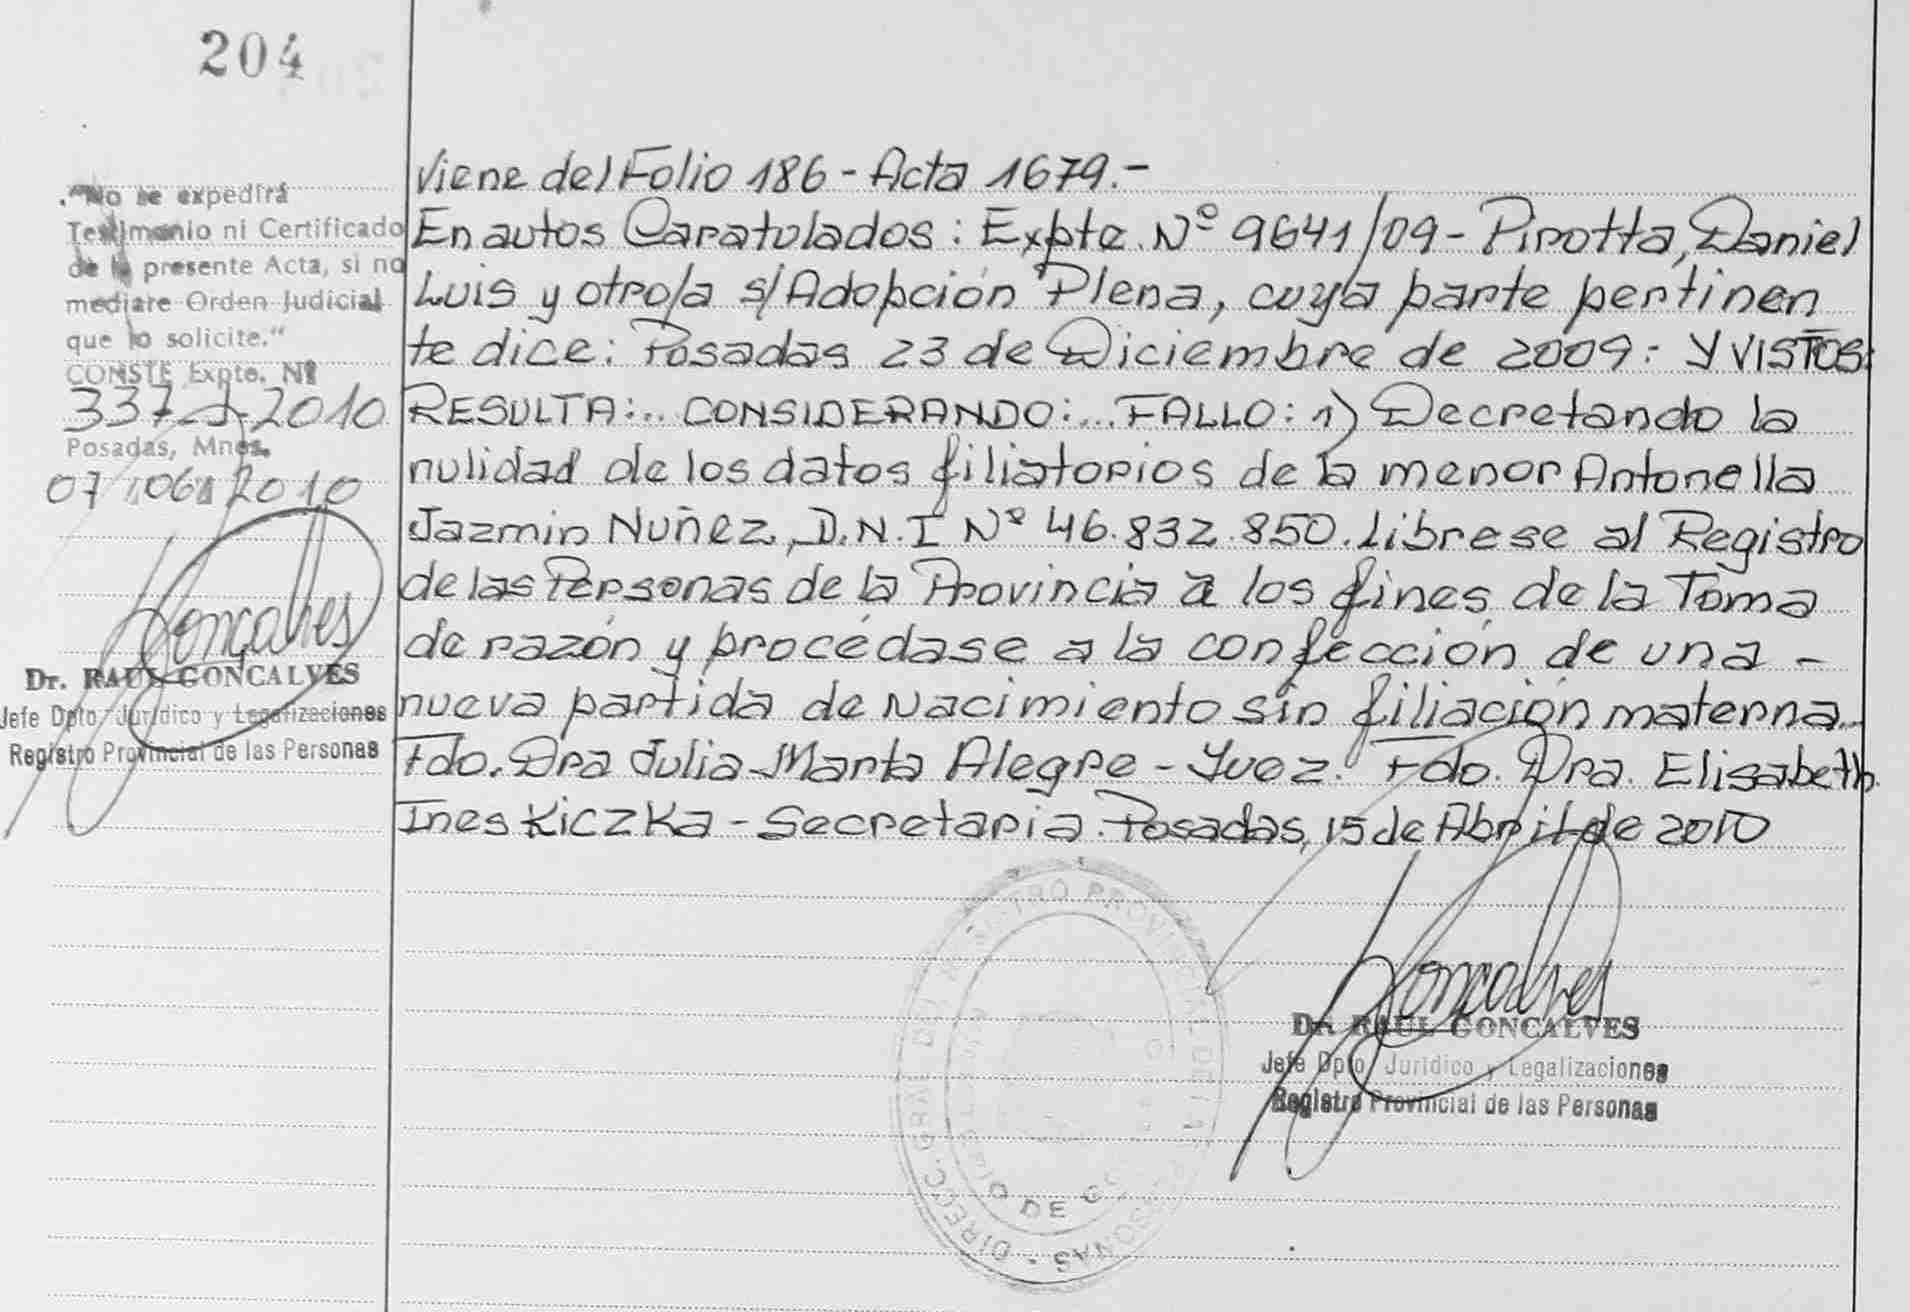 204
"No se expedirá
Testimonio ni Certificado
de la presente Acta, si no
mediare Orden Judicial
que lo solicite."
CONSTE Expte. Nº
337-J-2010
Posadas, Mnes.
07 06 2010
Goncalves
Dr. RAUL GONCALVES
Jefe Dpto. Jurídico y Legalizaciones
Registro Provincial de las Personas
Viene del Folio 186 - Acta 1679.-
En autos Caratulados: Expte. Nº 9641/09 - Pirotta, Daniel
Luis y otro/a s/Adopción Plena, cuya parte pertinen
te dice: Posadas 23 de Diciembre de 2009: Y VISTOS:
RESULTA:... CONSIDERANDO:... FALLO: 1) Decretando la
nulidad de los datos filiatorios de la menor Antonella
Jazmin Nuñez, D.N.I Nº 46.832.850. Librese al Registro
de las Personas de la Provincia a los fines de la Toma
de razón y procédase a la confección de una -
nueva partida de Nacimiento sin filiación materna.-
Fdo. Dra Julia Marta Alegre - Juez. Fdo. Dra. Elisabeth
Ines Kiczka - Secretaria. Posadas, 15 de Abril de 2010
Goncalves
Dr. RAUL GONCALVES
Jefe Dpto. Jurídico y Legalizaciones
Registro Provincial de las Personas
DIRECC. GRAL. DEL REGISTRO PROVINCIAL DE LAS PERSONAS
DE